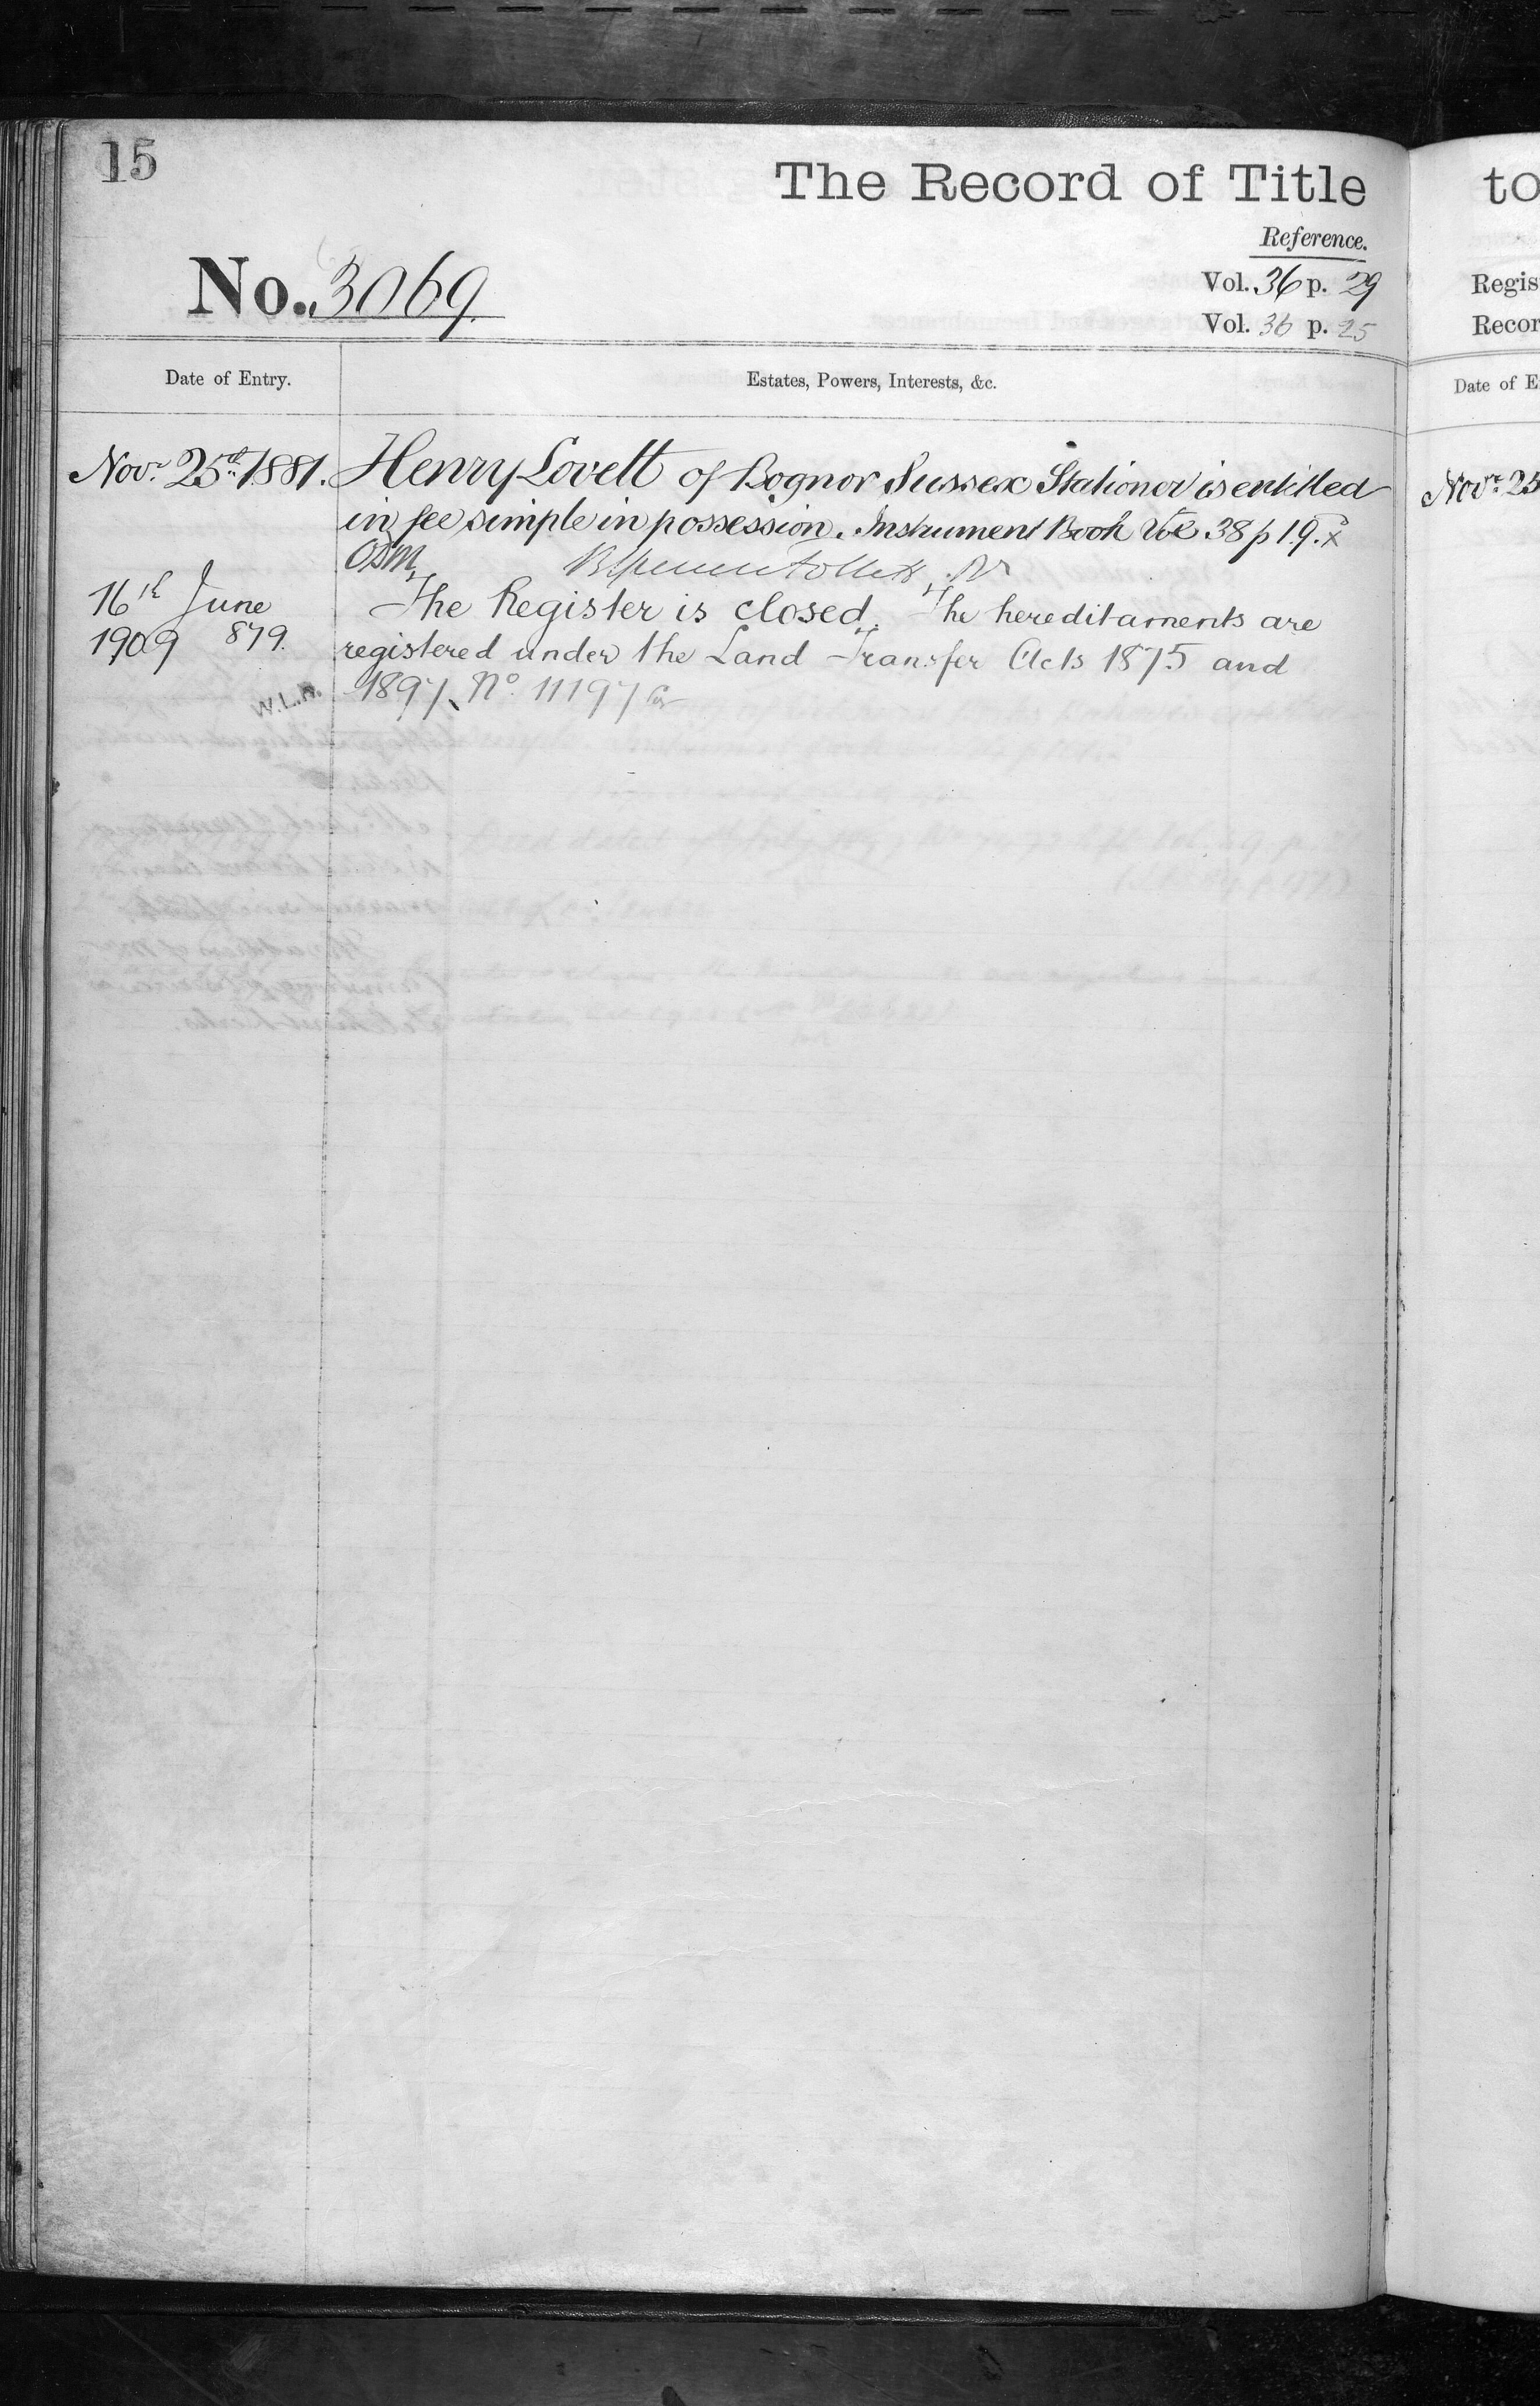 15
The Record of Title
Reference.
No. 3069.
Vol. 36 p. 29
Vol. 36 p. 25
Date of Entry.
Estates, Powers, Interests, &c.
Novr. 25th 1881.
Henry Lovett of Bognor Sussex Stationer is entitled
in fee simple in possession. Instrument Book Vol 38 p 19. x
16th June
1909 879.
The Register is closed. The hereditaments are
registered under the Land Transfer Acts 1875 and
1897, No. 11197
W.L.R.
to
Regis
Recor
Date of E
Novr. 25